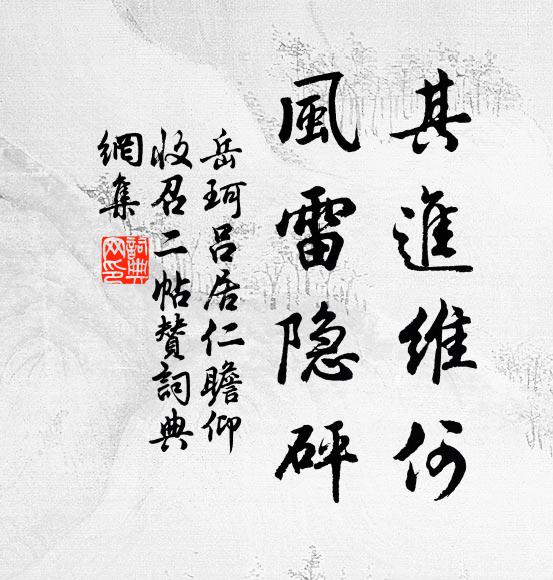 其進維何
風雷隐砰
岳珂呂居仁瞻仰
收召二帖贊詞典
網集
詞典網印